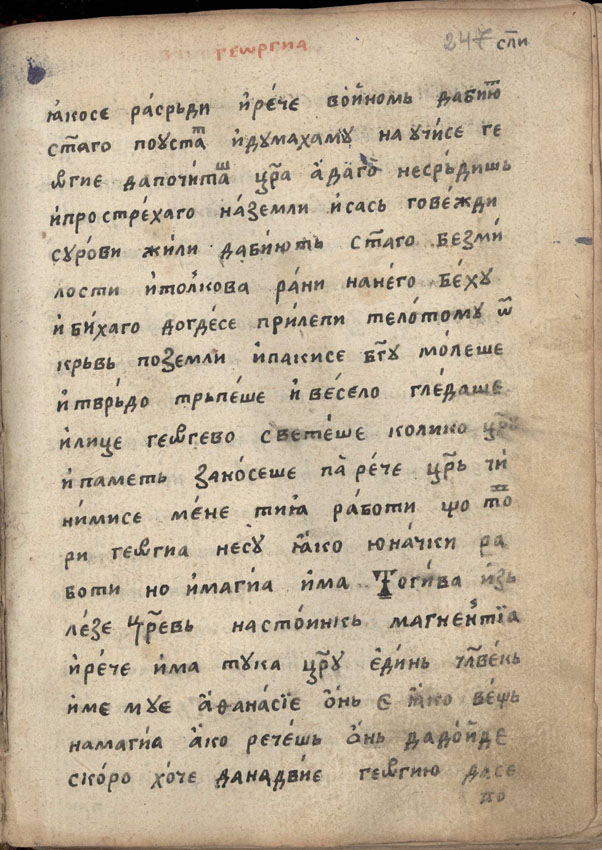 геѡргиа
247 спи
ꙗ҆косе расрьди и҆рече во́и҆номь даби́ют
ст҃аго поуста и҆думахаму научисе ге
ѡ҆гие дапочиташ цр҃а а҆даго̀ несрь́дишь
и҆простре́хаго на́земли и҆сась гове́жди
суро́ви жи́ли даби́ють ст҃аго безми́
лости и҆то́лкова ра́ни нане́го бе́ху
и҆би́хаго догде́се при́лепи тело́тому ѿ
крьвь поземли и҆пакисе бг҃у мо́леше
и҆твръ́до трьпе́ше и҆ве́село гле́даше
и҆лице геѡ҆гево свете́ше колико цр҃у
и҆паметь зано́сеше па рече цр҃ь чи́
ни́мисе ме́не тиꙗ҆ ра́боти що то
ри геѡ҆гиа несу̀ ꙗ҆ко юна́чки ра
боти но и҆маги́а и҆ма Тоги́ва и҆зь
ле́зе цр҃евь насто́инкь магне́нтїа
и҆рече и҆ма тука цр҃у є҆ди́нь чл҃ве́кь
и҆ме муе а҆ѳана́сїе ѻ҆нь є ꙗ҆ко ве́щь
намаги́а а҆ко рече́шь ѻ҆нь дадо́иде
ско́ро хо́че данадви́е геѡ҆гию да се
по